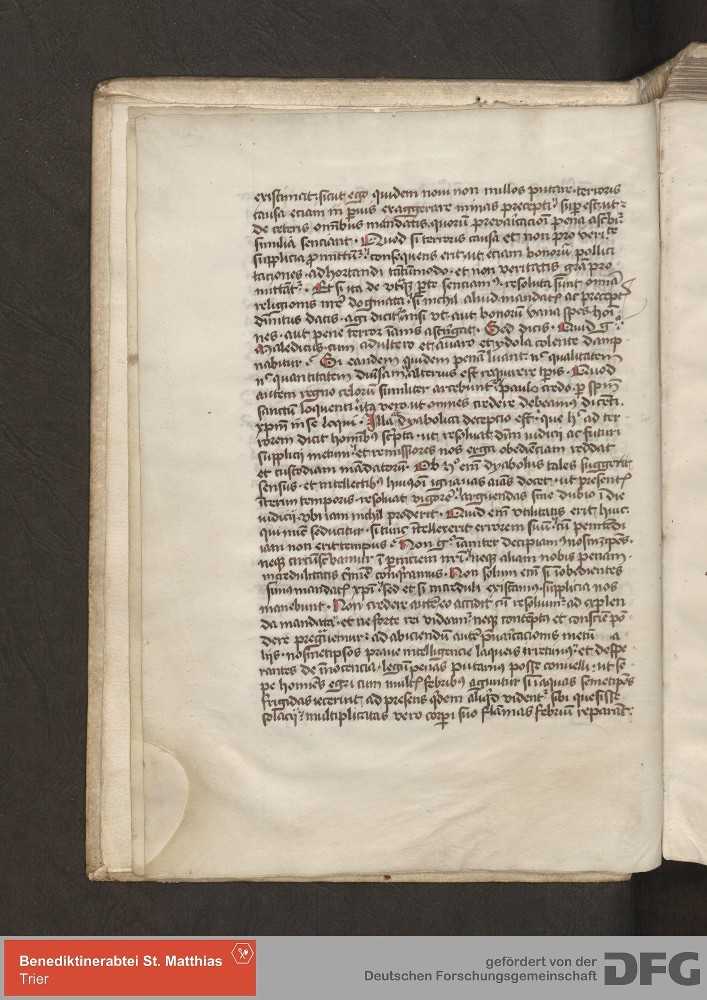 existimat. sicut ego quidem noui non nullos putare. terroris
causa etiam in paruis exaggerare minas precepti. superest. ut
de ceteris omnibus mandatis. quorum preuaricacioni pena ascribitur
similia senciant. Quod si terroris causa et non pro veritate
supplicia promittuntur. consequens erit. ut etiam bonorum pollici
taciones. adhortandi tantummodo. et non veritatis gratia pro
mittantur. Et si ita de utraque parte senciamus. resoluta sunt omnia
religionis nostre dogmata. si nichil aliud mandatis ac preceptis
diuinitus datis. agi dicitur. nisi ut. aut bonorum vana spes. homi
nes. aut pene terror inanis astringat. Sed dicis. Quid ergo
Maledicus. cum adultero et auaro et ydola colente damp
nabitur. Si eandem quidem penam luant. nec qualitatem
nec quantitatem diuersam. alterius est requirere temporis. Quod
autem regno celorum similiter arcebuntur. Paulo credo. per spiritum
sanctum loquenti. ita vero. ut omnes credere debeamus dicenti.
xpm in se loqui. Illa dyabolica decepcio est. que hec ad ter
rorem dicit hominibus scripta. ut resoluat diuini iudicii ac futuri
supplicii metum. et remissiores nos erga obedienciam reddat
et custodiam mandatorum. Ob hoc enim dyabolus tales suggerit
sensus. et intellectibus huiusmodi ignauas animas docet. ut presentis
interim temporis. resoluat vigorem. arguendas sine dubio in die
iudicii. vbi iam nichil proderit. Quid enim vtilitatis erit huic.
qui nunc seducitur. si tunc intellexerit errorem suum. cum penitendi
iam non erit tempus. Non ergo inaniter decipiamus nosmetipsos.
neque circumscribamur in perniciem nostram. neque aliam nobis penam.
incredulitatis crimine conquiramus. Non solum enim si inobedientes
simus mandatis xpi. sed et si increduli existamus. supplicia nos
manebunt. Non credere autem eo accidit cum resoluimur ad explen
da mandata. et ne forte rei videamur. neque contempti et consciencie pon
dere pregrauemur. ad abiciendum autem preuaricacionis metum a
liis. nosmetipsos praue intelligencie laqueis irretimus. et despe
rantes de innocencia. legum penas putamus posse conuelli. ut se
pe homines egri cum multis febribus aguntur si in aquas semetipsos
frigidas iecerint. ad presens quidem aliquid videntur sibi quesisse
solacii. multiplicatas vero corpori suo flammas febrium reparant.
Benediktinerabtei St. Matthias
Trier
gefördert von der
Deutschen Forschungsgemeinschaft
DFG